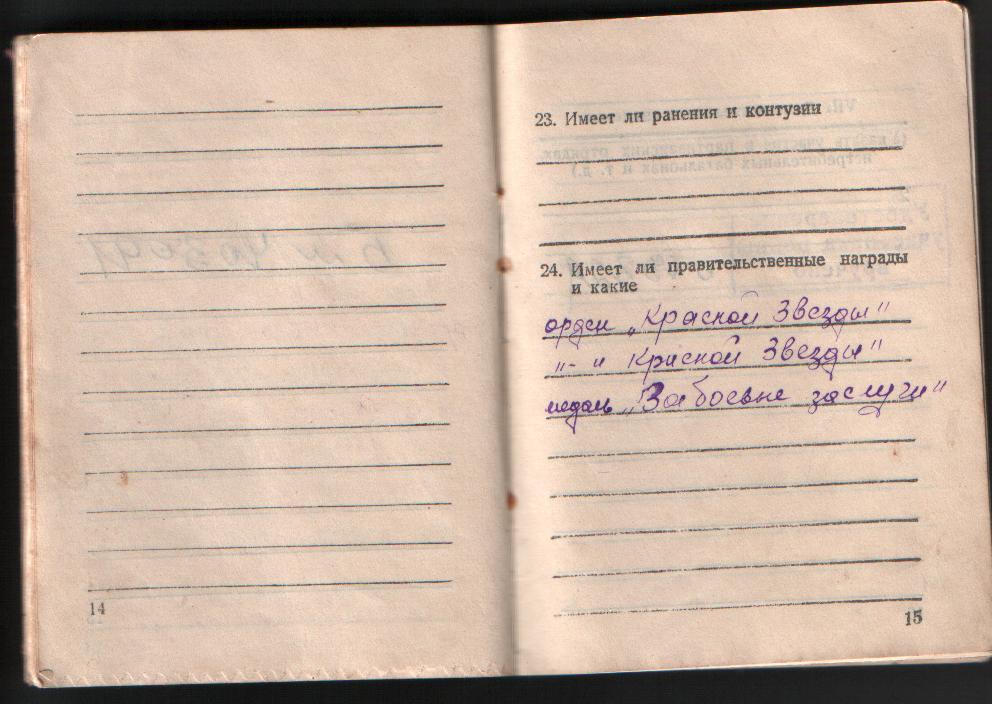 14
23. Имеет ли ранения и контузии
24. Имеет ли правительственные награды
и какие
орден „Красной Звезды"
"-" Красной Звезды"
медаль „За боевые заслуги"
15